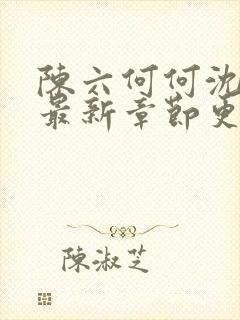 陳六何何沈
最新章節更
陳淑芝